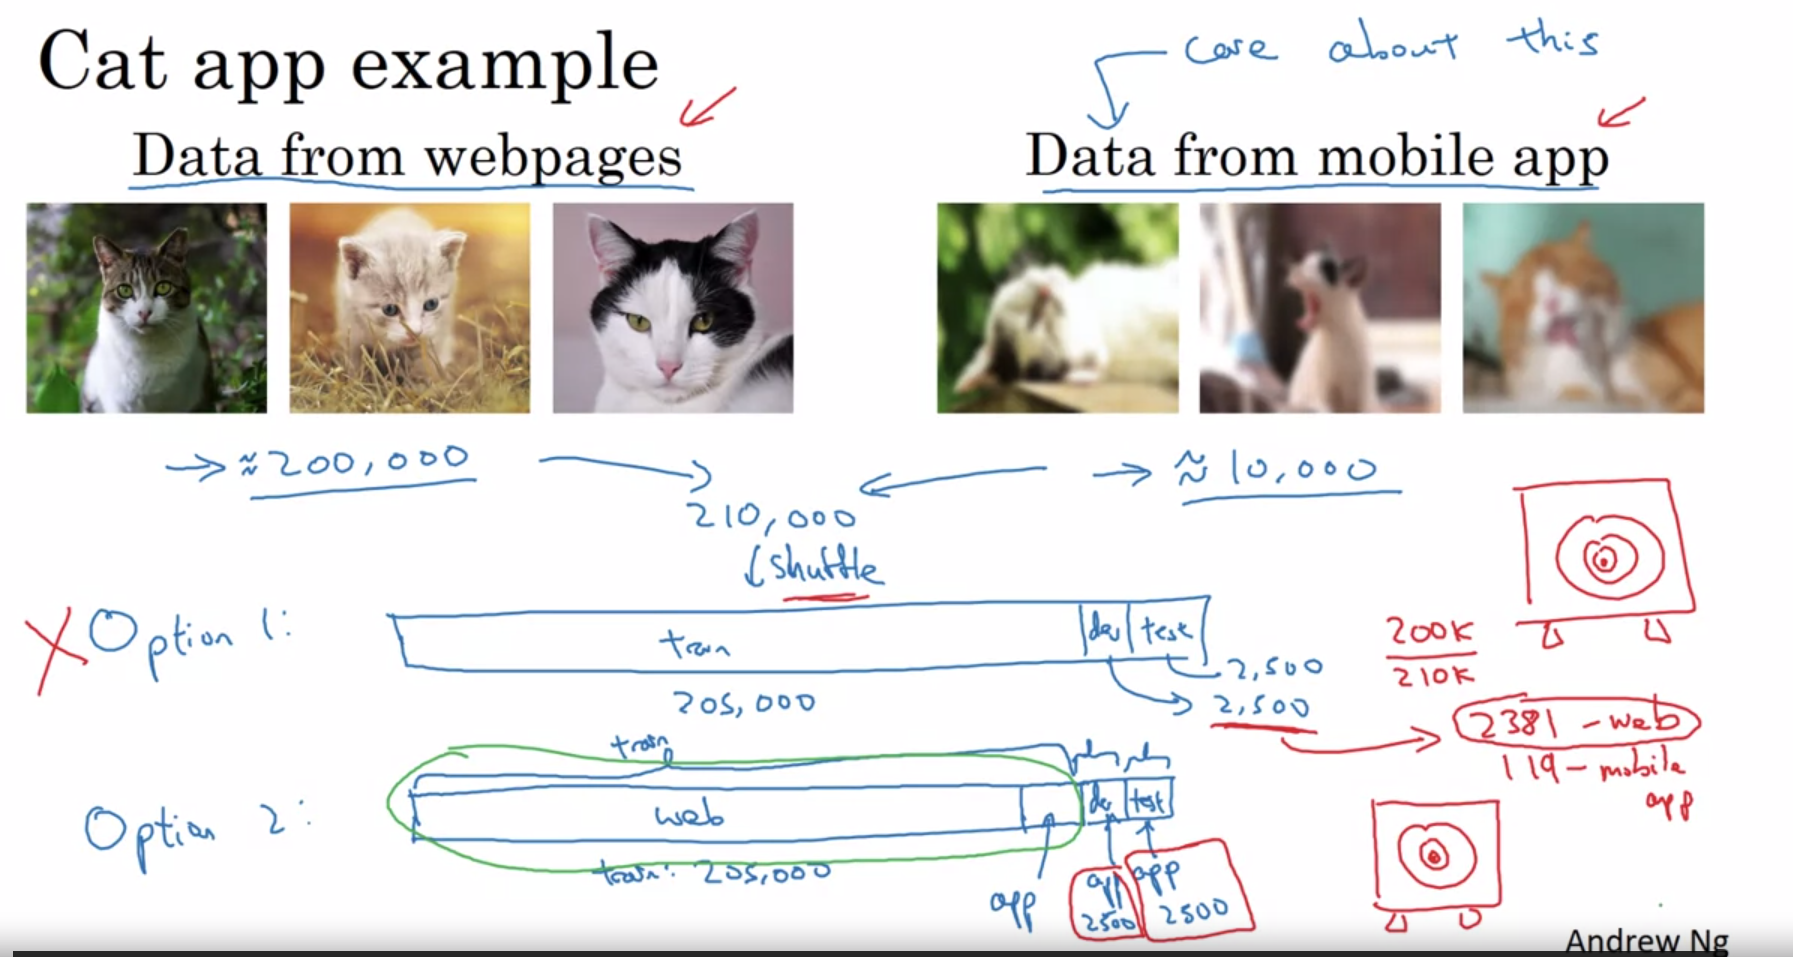 Cat app example
care about this
Data from webpages
Data from mobile app
→ ≈ 200,000
→ ≈ 10,000
210,000
↓ shuffle
X Option 1:
train
dev
test
205,000
2,500
2,500
200K
210K
2381 - web
119 - mobile
app
Option 2:
train
web
dev
test
train: 205,000
app
app
2500
app
2500
Andrew Ng